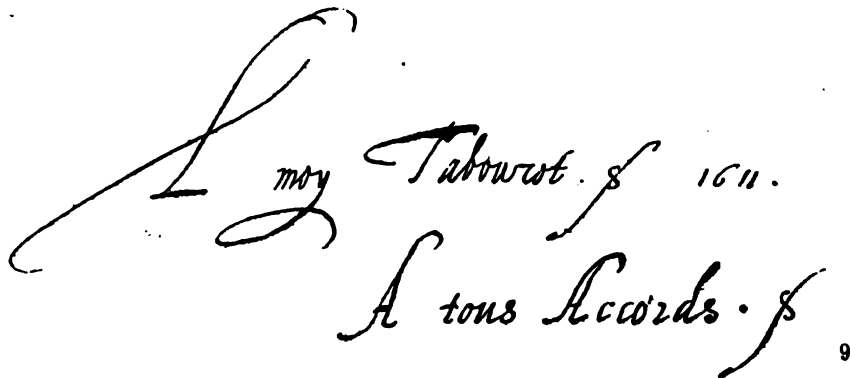 A moy Tabourot. § 1611.
A tous Accords. §
9